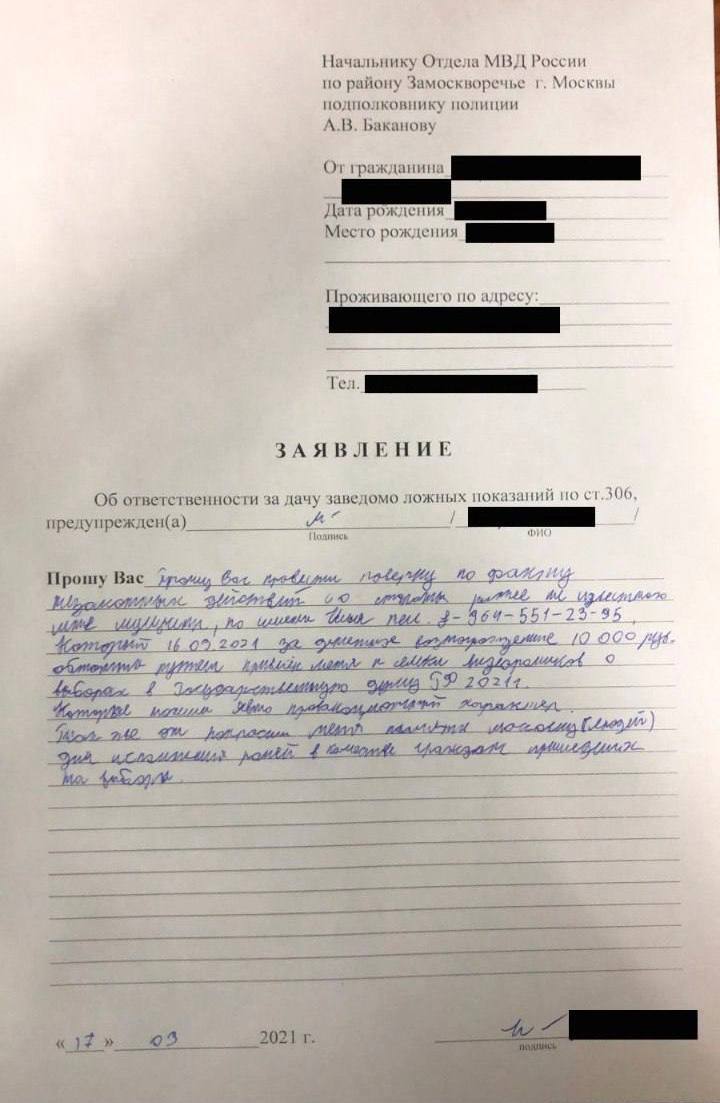 Начальнику Отдела МВД России
по району Замоскворечье г. Москвы
подполковнику полиции
А.В. Баканову
От гражданина
Дата рождения
Место рождения
Проживающего по адресу:
Тел.
ЗАЯВЛЕНИЕ
Об ответственности за дачу заведомо ложных показаний по ст.306,
предупрежден(а) / /
Подпись ФИО
Прошу Вас Прошу Вас провести поверку по факту
незаконных действий со стороны ранее не известного
мне мужчины, по имени Илья тел. 8-964-551-23-95,
Который 16.09.2021 за денежное вознаграждение 10 000 руб.
путем меня к видеороликов о
выборах в Государственную думу РФ 2021г.
Которые явно провокационный характер.
Так же он попросил меня (людей)
для исполнения ролей в качестве граждан пришедших
на выборы.
«17» 09 2021 г.
подпись